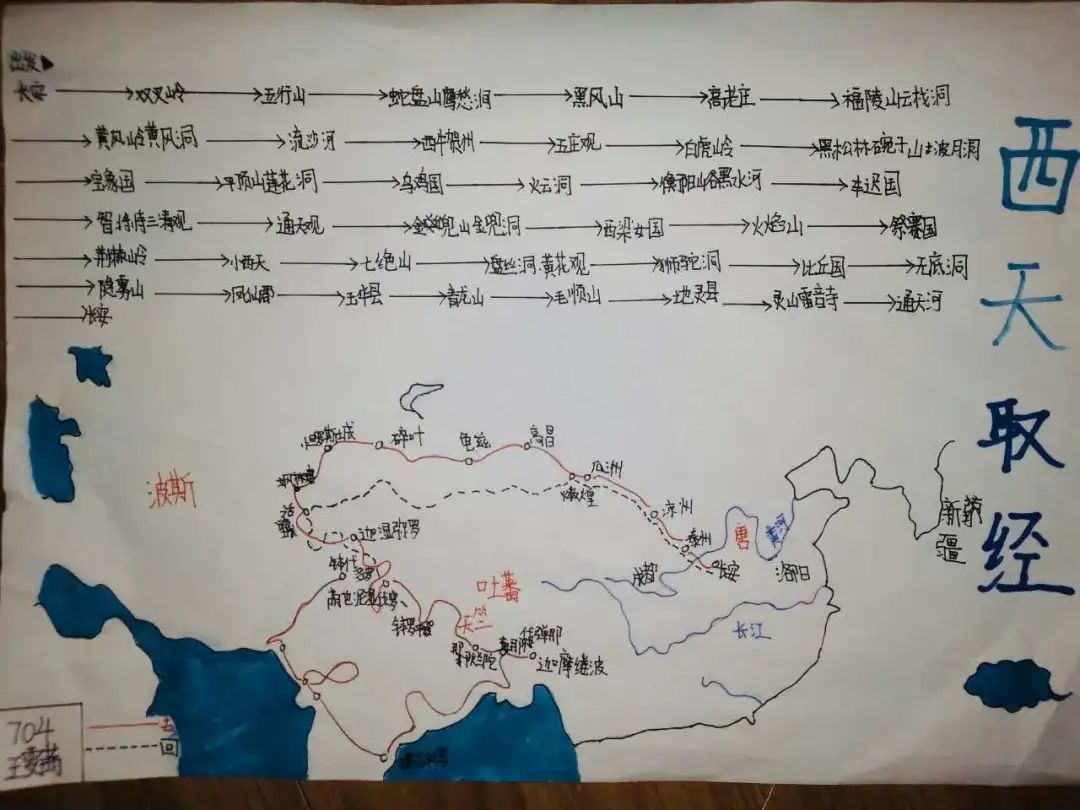 出发
长安 双叉岭 五行山 蛇盘山鹰愁涧 黑风山 高老庄 福陵山云栈洞
黄风岭黄风洞 流沙河 西牛贺州 五庄观 白虎岭 黑松林碗子山波月洞
宝象国 平顶山莲花洞 乌鸡国 火云洞 衡阳山谷黑水河 车迟国
三清观 通天观 兜山金兜洞 西梁女国 火焰山 祭赛国
荆棘岭 小西天 七绝山 盘丝洞.黄花观 狮驼洞 比丘国 无底洞
隐雾山 凤仙郡 玉华县 青龙山 毛顺山 地灵县 灵山雷音寺 通天河
长安
西天取经
碎叶
龟兹
高昌
瓜洲
敦煌
凉州
秦州
长安
洛阳
成都
唐
黄河
长江
新疆
波斯
活国
迦湿弥罗
吐蕃
天竺
迦摩缕波
704
去
回